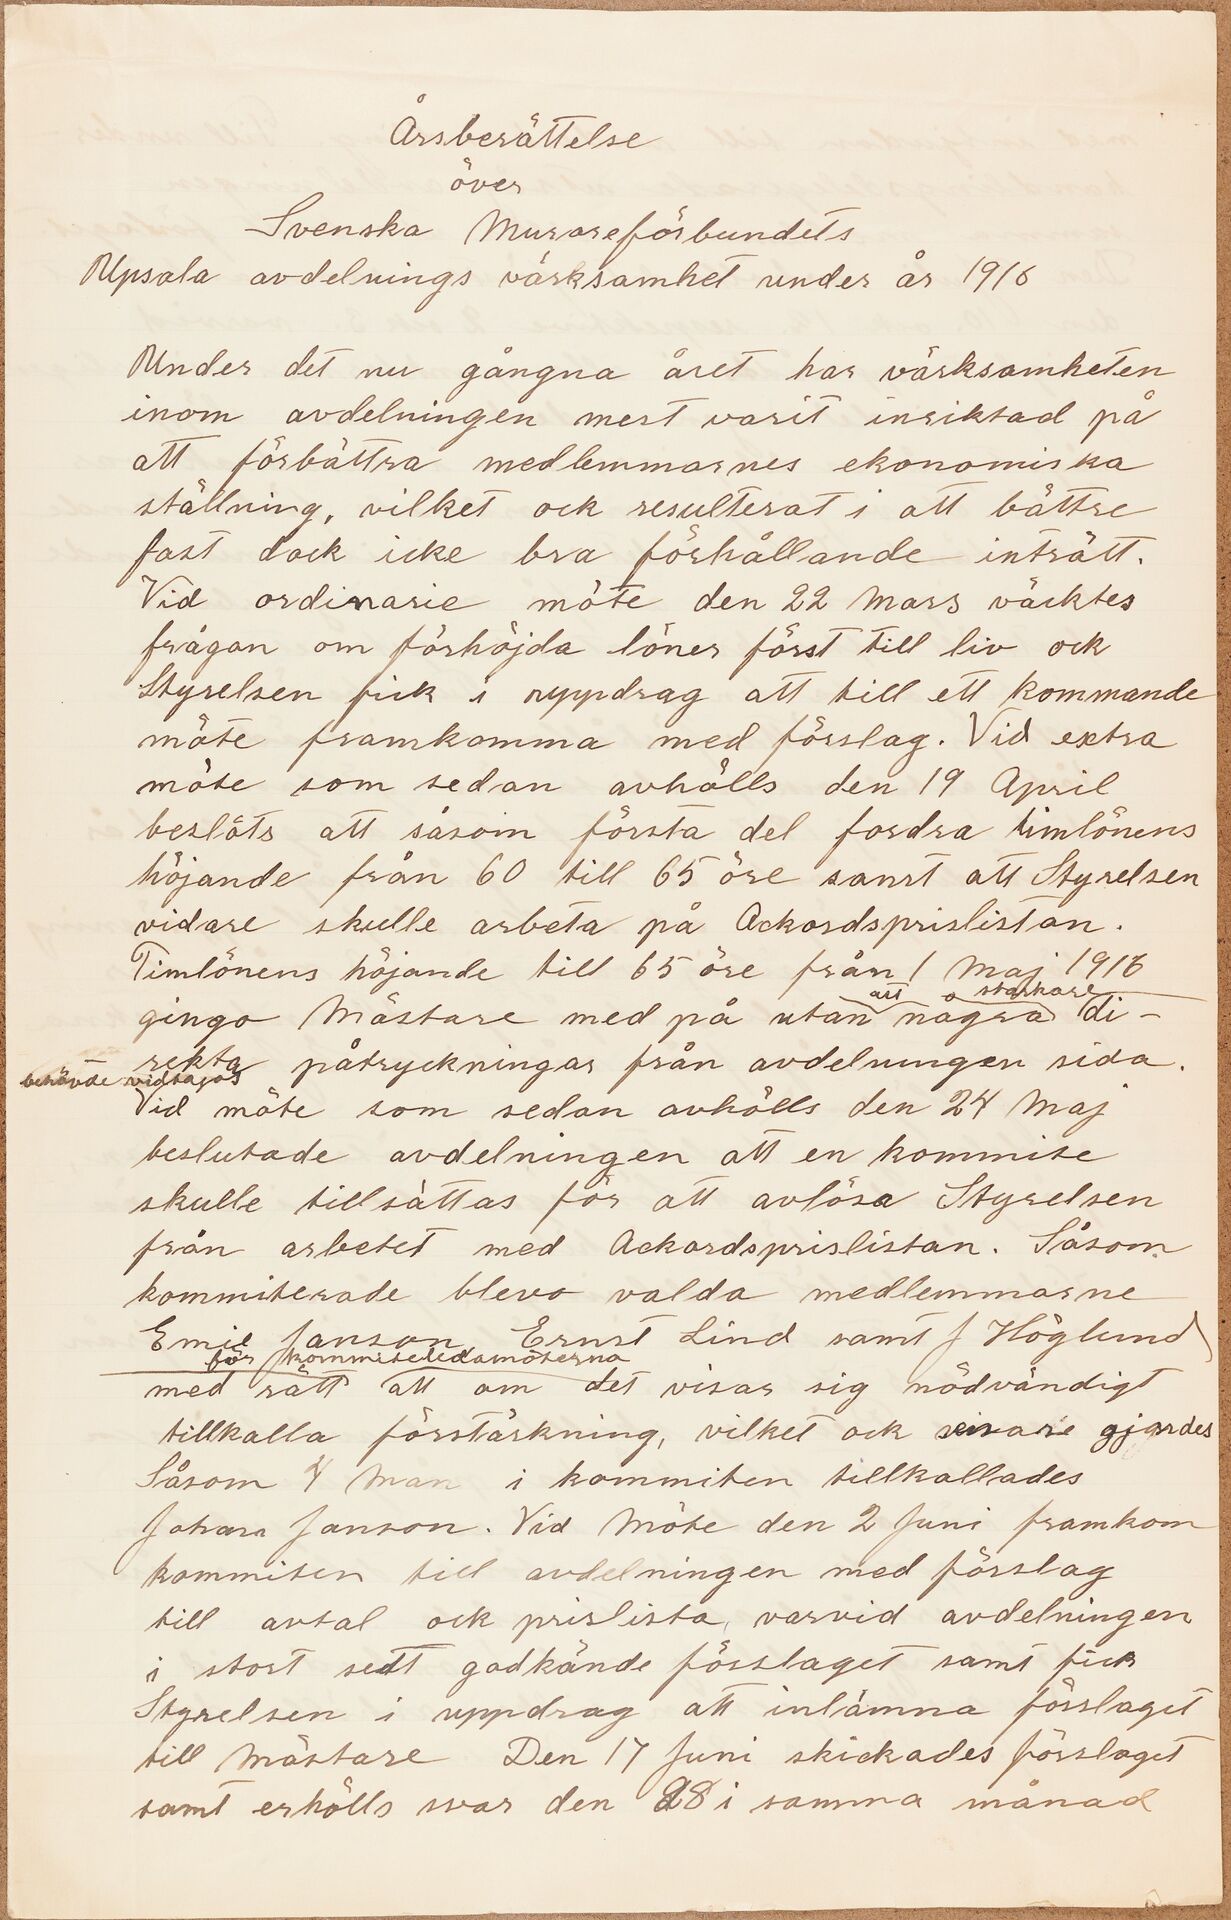 Årsberättelse
över
Svenska Murareförbundets
Upsala avdelnings värksamhet under år 1916
Under det nu gångna året har värksamheten
inom avdelningen mest varit inriktad på
att förbättra medlemmarnes ekonomiska
ställning, vilket ock resulterat i att bättre
fast dock icke bra förhållande inträtt.
Vid ordinarie möte den 22 Mars väcktes
frågan om förhöjda löner först till liv ock
Styrelsen fick i uppdrag att till ett kommande
möte framkomma med förslag. Vid extra
möte som sedan avhölls den 19 April
beslöts att såsom första del fordra timlönens
höjande från 60 till 65 öre samt att Styrelsen
vidare skulle arbeta på Ackordsprislistan.
Timlönens höjande till 65 öre från 1 Maj 1916
att starkare
gingo Mästare med på utan några di-
rekta påtryckningar från avdelningen sida.
behövde vidtagas
Vid möte som sedan avhölls den 24 Maj
beslutade avdelningen att en kommite
skulle tillsättas för att avlösa Styrelsen
från arbetet med Ackordsprislistan. Såsom
kommiterade blevo valda medlemmarne
Emil Janson Ernst Lind samt J Höglund
för kommiteledamöterna
med rätt att om det visar sig nödvändigt
tillkalla förstärkning, vilket ock gjordes
Såsom 4 Man i kommiten tillkallades
Johan Janson. Vid Möte den 2 Juni framkom
kommiten till avdelningen med förslag
till avtal ock prislista, varvid avdelningen
i stort sedt godkände förslaget samt fick
Styrelsen i uppdrag att inlämna förslaget
till Mästare Den 17 Juni skickades förslaget
samt erhölls svar den 28 i samma månad